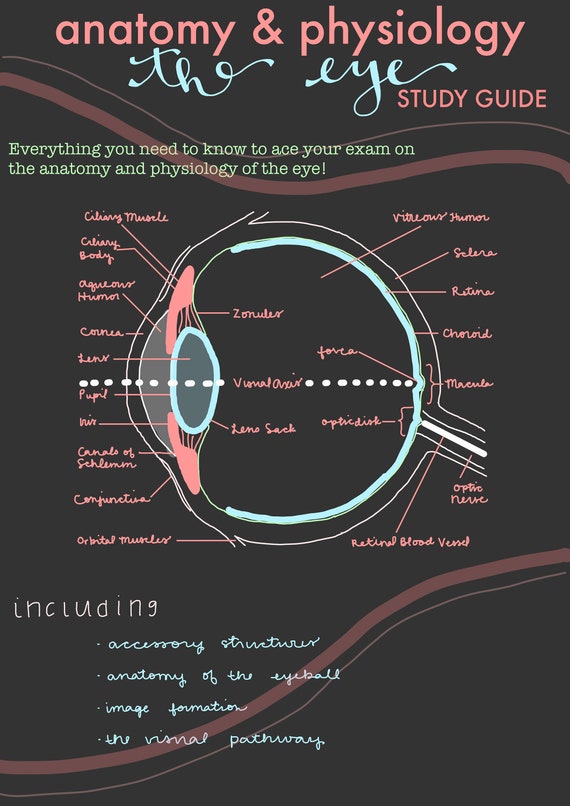 anatomy & physiology
the eye
STUDY GUIDE
Everything you need to know to ace your exam on
the anatomy and physiology of the eye!
Ciliary Muscle
Ciliary
Body
Aqueous
Humor
Cornea
Lens
Pupil
Iris
Canals of
Schlemm
Conjunctiva
Orbital Muscles
Zonules
Visual Axis
Lens Sack
Vitreous Humor
Sclera
Retina
Choroid
fovea
Macula
optic disk
optic
Nerve
Retinal Blood Vessel
including
· accessory structures
· anatomy of the eyeball
· image formation
· the visual pathway